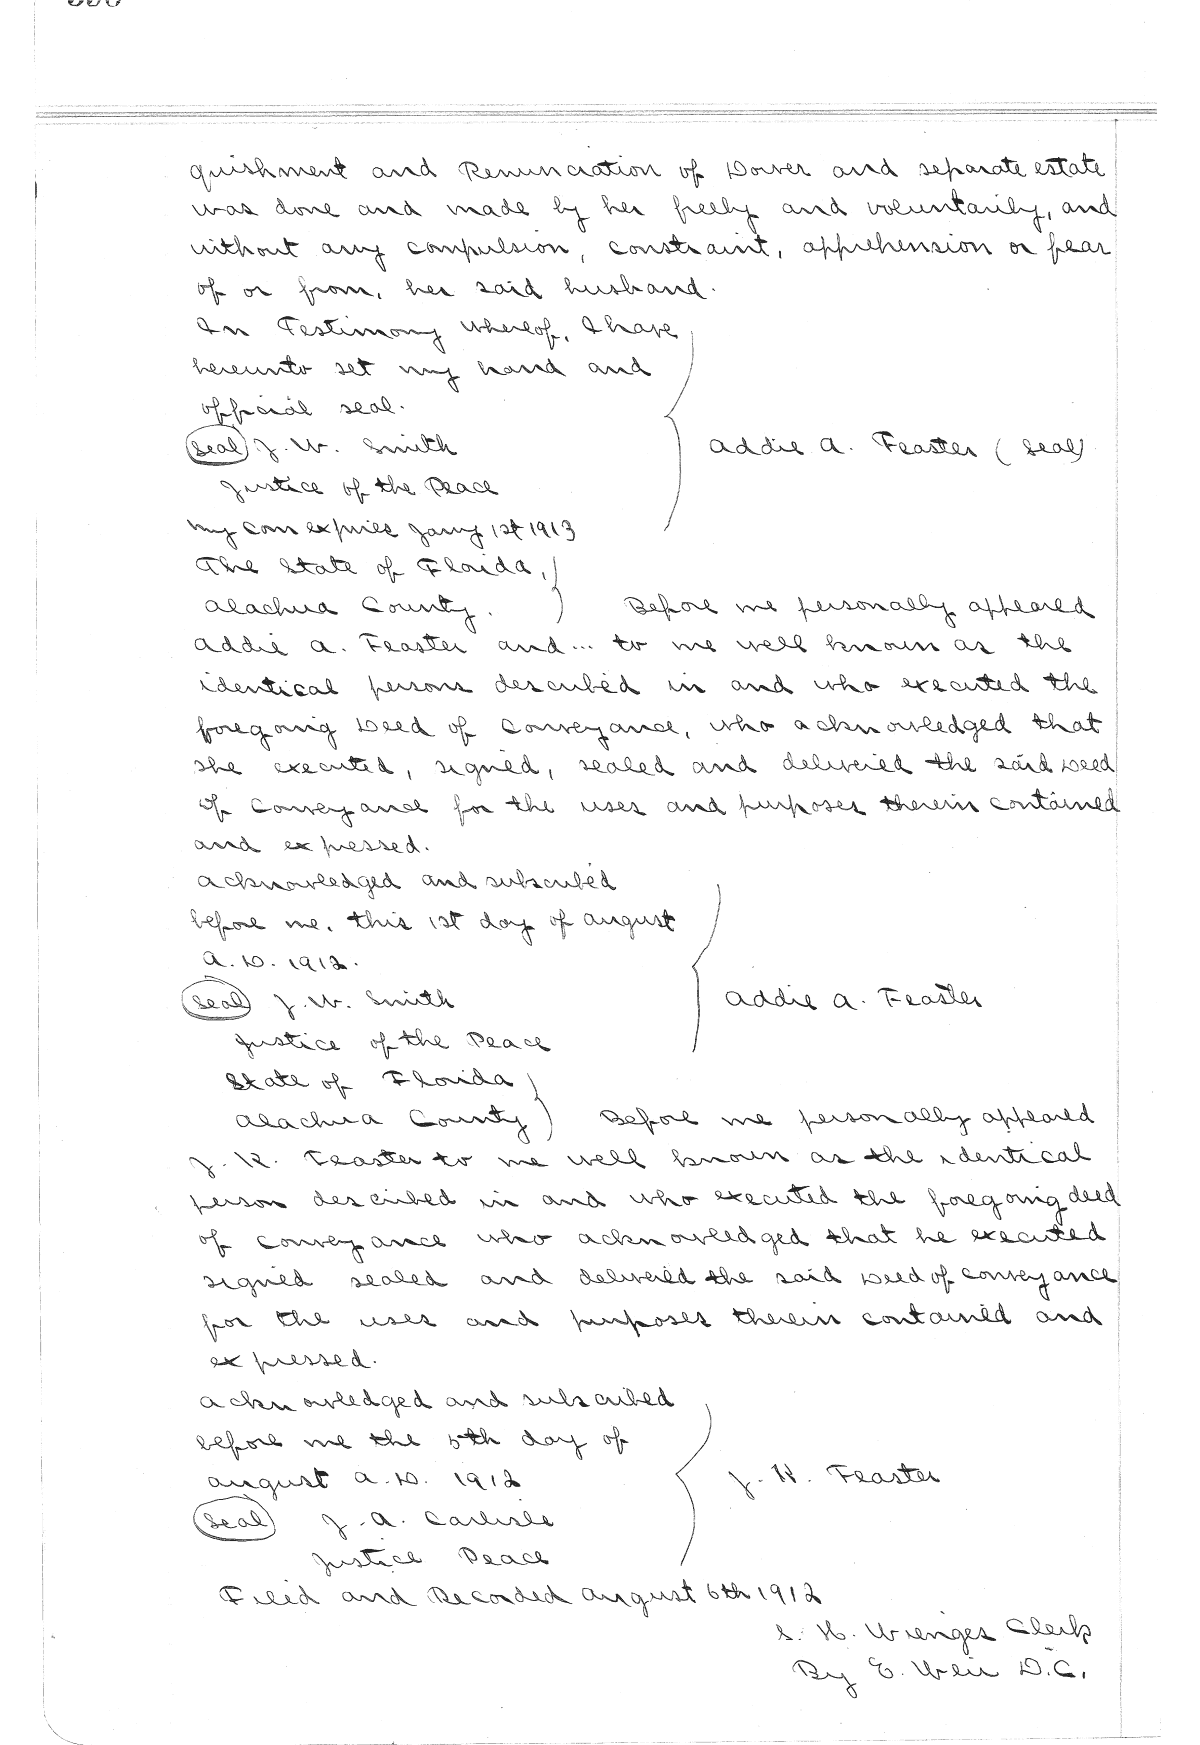 quishment and Renunciation of Dower and separate estate
was done and made by her freely and voluntarily, and
without any compulsion, constraint, apprehension or fear
of or from, her said husband.
In Testimony whereof, I have
hereunto set my hand and
official seal.
(Seal) J. W. Smith
Addie A. Feaster (Seal)
Justice of the Peace
My com expires Jany 1st 1913
The State of Florida,
Alachua County. Before me personally appeared
Addie A. Feaster and... to me well known as the
identical persons described in and who executed the
foregoing Deed of Conveyance, who acknowledged that
she executed, signed, sealed and delivered the said Deed
of Conveyance for the uses and purposes therein contained
and expressed.
Acknowledged and subscribed
before me, this 1st day of August
A.D. 1912.
(Seal) J. W. Smith
Addie A. Feaster
Justice of the Peace
State of Florida
Alachua County Before me personally appeared
J. K. Feaster to me well known as the identical
person described in and who executed the foregoing deed
of conveyance who acknowledged that he executed
signed sealed and delivered the said Deed of Conveyance
for the uses and purposes therein contained and
expressed.
Acknowledged and subscribed
before me the 5th day of
August A.D. 1912
J. K. Feaster
(Seal) J. A. Carlisle
Justice Peace
Filed and Recorded August 6th 1912
S. H. Wienges Clerk
By E. Weir D.C.